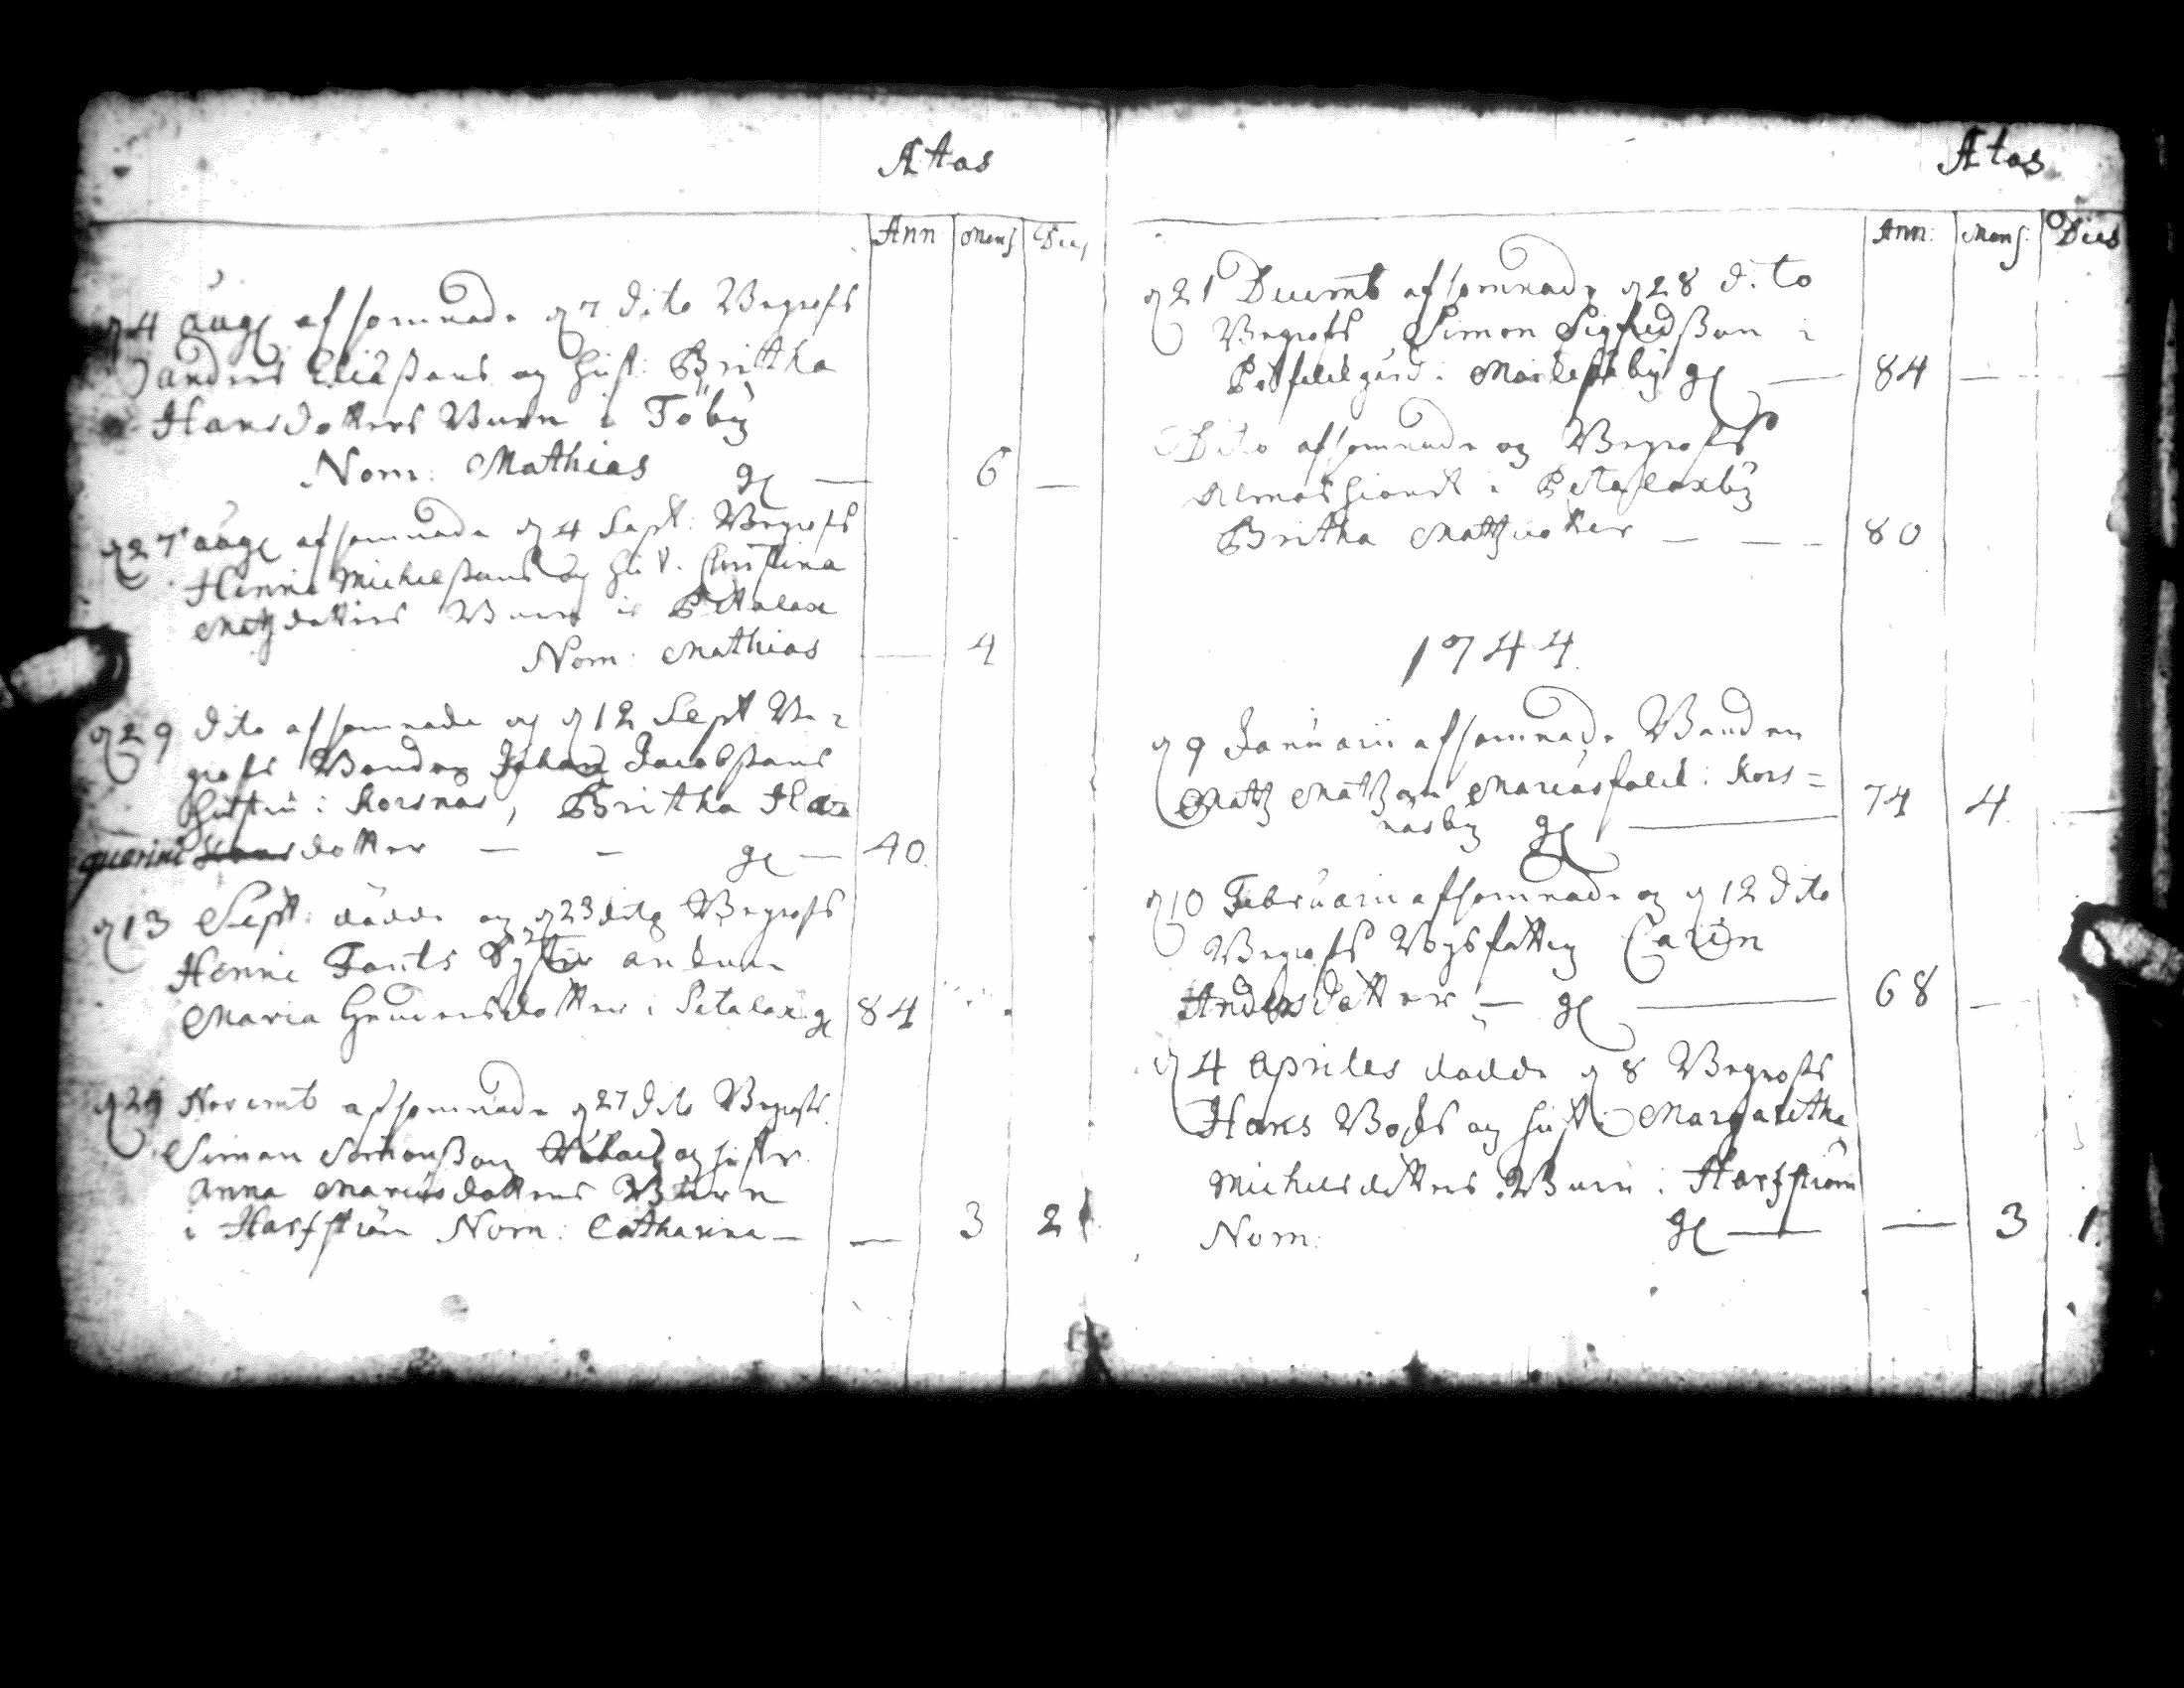 Ætas
Ann Mens Dies
d 4 Aug afsomnade d 7 dito Begrofs
Anders Eliæßons og hust: Britha
Hansdotters Barn i Töby
Nom: Mathias gl — 6 —
d 27 Aug afsomnade d 4 Sept: Begrofs
Henric Michelßons og hust. Christina
Matzdotters Barn i Petalax
Nom: Mathias — 4
d 29 dito afsomnade og d 12 Sept Be=
grofs Bonden Johan Jacobßons
hustru i Korsnäs, Britha
dotter — — gl — 40.
d 13 Sept: dödde og d 23 dito Begrofs
Henric Fants
Maria Hendersdotter i Petalax gl 84
d 24 Novemb afsomnade d 27 dito Begrofs
Simon Simonßon og hustr.
Anna Mariæ dotters Barn
i Harfström Nom: Catharina — — 3 2
Ætas
Ann: Mens: Dies
d 21 Decemb afsomnade d 28 dito
Begrofs Simon Sigfredßon i
gård i by gl — 84 —
Dito afsomnade og Begrofs
i Petalaxby
Britha Matzdotter — — — 80
1744.
d 9 Januarii afsomnade Bonden
Matz Matzson Mariasfolck i Kors=
näsby gl — 74 4.
d 10 Februarii afsomnade og d 12 dito
Begrofs Carin
Andersdotter — gl — 68 —
d 4 Apriles dödde d 8 Begrofs
Hans og hust: Margaretha
Michelsdotters Barn i Harfström
Nom: gl — — 3 1.